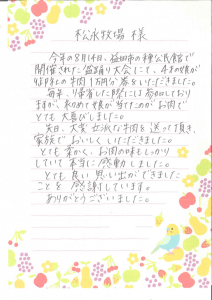 松永牧場 様
今年の8月14日、益田市の種公民館で
開催された盆踊り大会にて、4才の娘が
牛肉1万円分 券をいただきました。
毎年、帰省した際には参加しており
ますが、初めて娘が当てたのがお肉で
とても大喜びしました。
先日、大変立派な牛肉を送って頂き、
家族で おいしくいただきました。
とても柔かく、お肉の味もしっかり
していて本当に感動しました。
とても良い思い出ができました
ことを 感謝しています。
ありがとうございました。